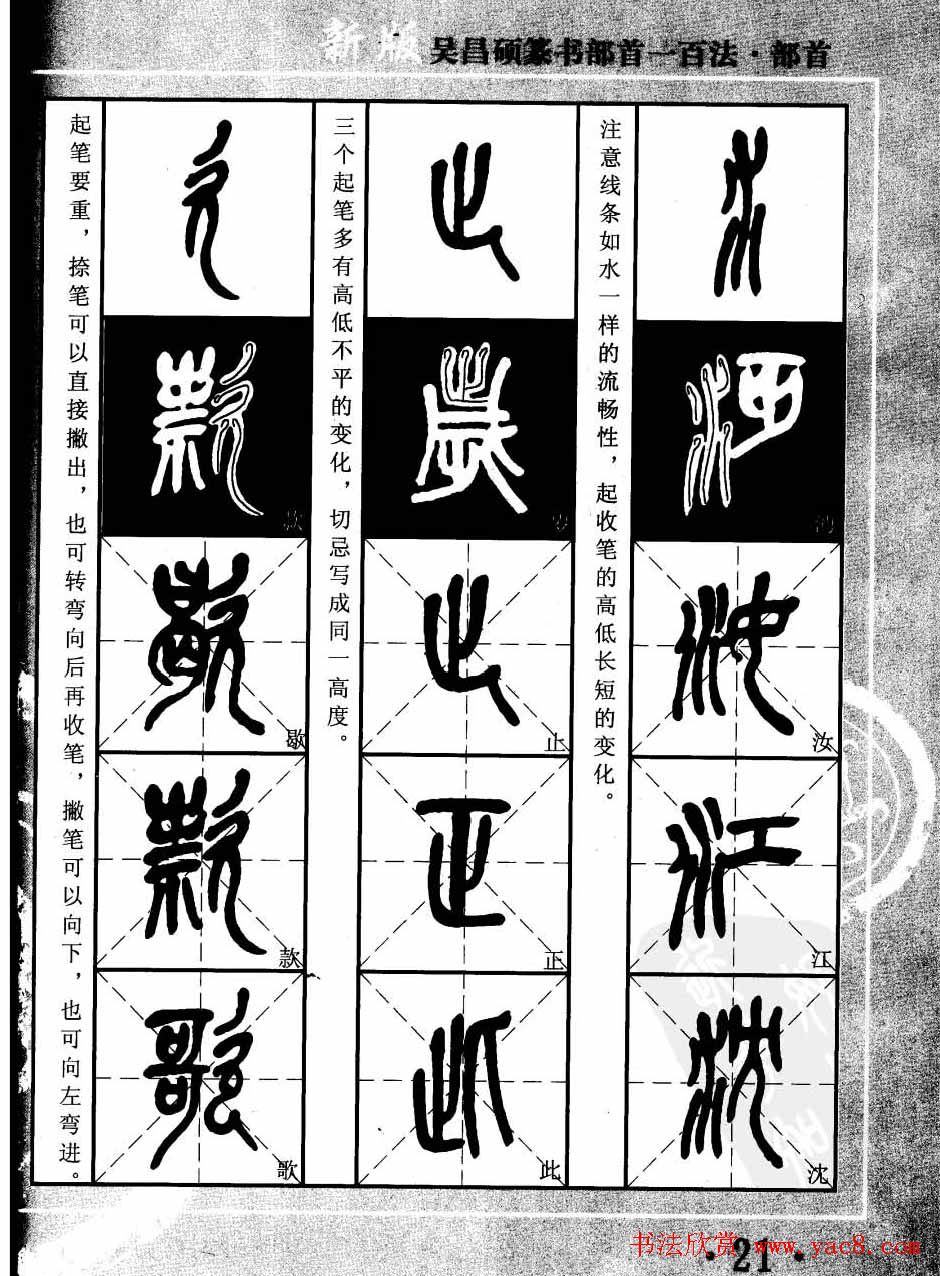 新版 吴昌硕篆书部首一百法·部首
注意线条如水一样的流畅性，起收笔的高低长短的变化。
河
汝
江
沈
三个起笔多有高低不平的变化，切忌写成同一高度。
岁
止
正
此
起笔要重，捺笔可以直接撇出，也可转弯向后再收笔，撇笔可以向下，也可向左弯进。
款
歇
款
歌
书法欣赏 www.yac8.com
·21·